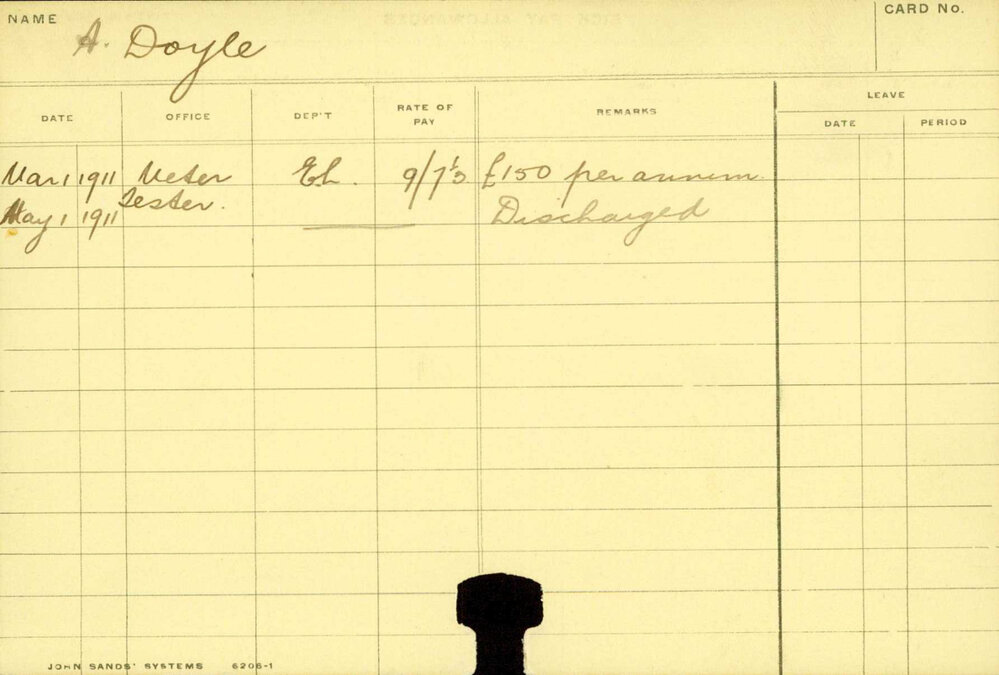 NAME A. Doyle CARD No.
DATE OFFICE DEP'T RATE OF PAY REMARKS LEAVE
DATE PERIOD
Mar 1 1911 Meter El. 9/7 £150 per annum
Tester.
May 1 1911 Discharged
JOHN SANDS' SYSTEMS 6206-1